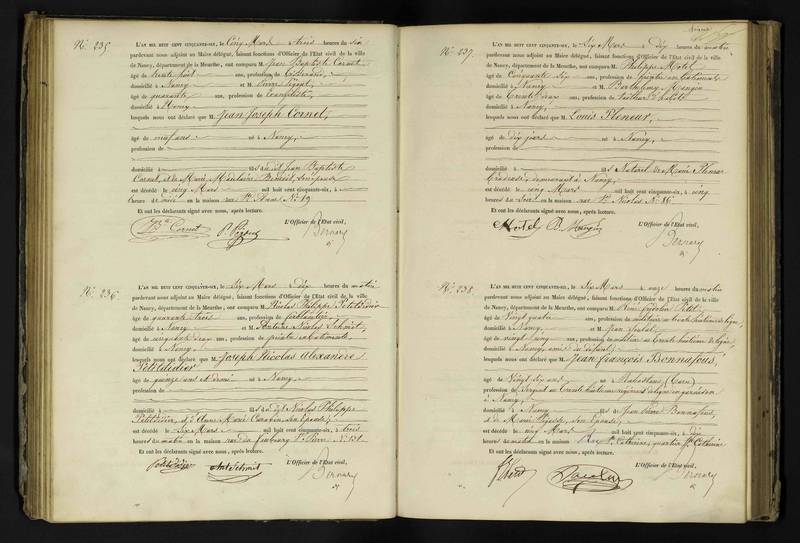 N.° 235
L'AN MIL HUIT CENT CINQUANTE-SIX, le Cinq Mars à trois heures du soir
pardevant nous adjoint au Maire délégué, faisant fonctions d'Officier de l'État civil de la ville
de Nancy, département de la Meurthe, ont comparu M. Jean Baptiste Cornet
âgé de trente sept ans, profession de
domicilié à Nancy et M. Pierre
âgé de quarante ans, profession de
domicilié à Nancy
lesquels nous ont déclaré que M. Jean Joseph Cornet,
âgé de neuf ans né à Nancy,
profession de
domicilié à fils du dit Jean Baptiste
Cornet, et de Marie Madelaine son épouse
est décédé le cinq Mars mil huit cent cinquante-six, à
heures du soir en la maison rue Ste Anne N.° 19
Et ont les déclarants signé avec nous, après lecture.
L'Officier de l'État civil,
Cornet
Bernard
N.° 236
L'AN MIL HUIT CENT CINQUANTE-SIX, le Six Mars à dix heures du matin
pardevant nous adjoint au Maire délégué, faisant fonctions d'Officier de l'État civil de la ville
de Nancy, département de la Meurthe, ont comparu M. Nicolas Philippe Petitdidier
âgé de quarante trois ans, profession de ferblantier,
domicilié à Nancy et M. Antoine Nicolas Schmit,
âgé de ans, profession de
domicilié à Nancy
lesquels nous ont déclaré que M. Joseph Nicolas Alexandre
Petitdidier
âgé de quinze ans et demi né à Nancy,
profession de
domicilié à fils du dit Nicolas Philippe
Petitdidier, et d'Anne Marie son Epouse,
est décédé le Six Mars mil huit cent cinquante-six, à trois
heures du matin en la maison rue du faubourg St Pierre N.° 131
Et ont les déclarants signé avec nous, après lecture.
L'Officier de l'État civil,
Petitdidier Ant Schmit
Bernard
N.° 237
L'AN MIL HUIT CENT CINQUANTE-SIX, le Six Mars à dix heures du matin
pardevant nous adjoint au Maire délégué, faisant fonctions d'Officier de l'État civil de la ville
de Nancy, département de la Meurthe, ont comparu M. Philippe Motel
âgé de Cinquante six ans, profession de
domicilié à Nancy et M. Barthélemy Mangin
âgé de trente deux ans, profession de
domicilié à Nancy,
lesquels nous ont déclaré que M. Louis Pleneur,
âgé de dix jours né à Nancy,
profession de
domicilié à fils Naturel de Marie Pleneur
demeurant à Nancy,
est décédé le cinq Mars mil huit cent cinquante-six, à cinq
heures du soir en la maison rue St Nicolas N.° 86
Et ont les déclarants signé avec nous, après lecture.
L'Officier de l'État civil,
Motel B. Mangin
Bernard
N.° 238
L'AN MIL HUIT CENT CINQUANTE-SIX, le Six Mars à onze heures du matin
pardevant nous adjoint au Maire délégué, faisant fonctions d'Officier de l'État civil de la ville
de Nancy, département de la Meurthe, ont comparu M.
âgé de Vingt quatre ans, profession de militaire au trente huitième de ligne,
domicilié à Nancy, et M. Jean
âgé de vingt cinq ans, profession de militaire au trente huitième de ligne,
domicilié à Nancy,
lesquels nous ont déclaré que M. Jean François Bonnafous,
âgé de Vingt six ans né à (Tarn)
profession de Sergent au trente huitième régiment de ligne en garnison
à Nancy,
domicilié à Nancy fils de Jean Pierre Bonnafous,
et de Marie son Epouse,
est décédé le cinq Mars mil huit cent cinquante-six, à dix
heures du matin en la maison Rue Ste Catherine, quartier Ste Catherine
Et ont les déclarants signé avec nous, après lecture.
L'Officier de l'État civil,
Bernard